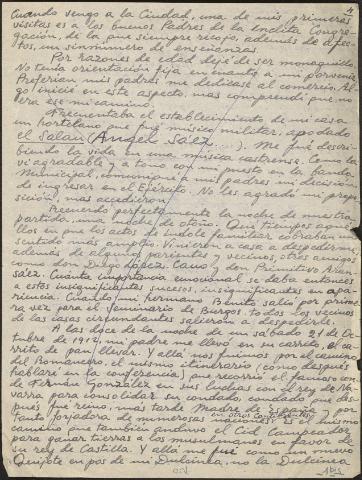 4
Cuando vengo a la Ciudad, una de mis primeras
visitas es a los buenos Padres de la Ínclita Congre-
gación, de la que siempre recojo, además de afec-
tos, un sinnúmero de enseñanzas.
Por razones de edad dejé de ser monaguillo.
No tenía orientación fija en cuanto a mi porvenir.
Preferían mis padres me dedicase al comercio. Al-
go inicié en este aspecto, mas comprendí que no
era ese mi camino.
Frecuentaba el establecimiento de mi casa
un hortelano que fué músico militar, apodado
el Salao (Angel Sáez ....). Me fué descri-
biendo la vida en una música castrense. Como la
vi agradable y a tono con mi puesto en la banda
Municipal, comuniqué a mis padres mi decisión
de ingresar en el Ejército. No les agradó mi propo-
sición, mas accedieron.
Recuerdo perfectamente la noche de nuestra
partida: una noche de otoño. Qué tiempos aque-
llos en que los actos de índole familiar cobraban un
sentido más amplio. Vinieron a casa a despedirme,
además de algunos parientes y vecinos, otros amigos,
como don Dulas López Cano y don Primitivo Arián
Sáez. Cuánta importancia emocional se daba entonces
a estos insignificantes sucesos, insignificantes en apa-
riencia. Cuando mi hermano Benito salió por prime-
ra vez para el Seminario de Burgos, todos los vecinos
de las casas circundantes salieron a despedirle.
A las doce de la noche de un sábado 31 de Oc-
tubre de 1912, mi padre me llevó en su carreto, el ca-
rrito de pan llevar. Y allá nos fuimos por el camino
del Romancero, el mismo itinerario (como después
hablaré en la conferencia) que recorrió el famoso con-
de Fernán González en sus luchas con el rey de Na-
varra para consolidar su condado, condado que des-
pués fue reino, mas tarde Madre de España y por
tanto forjadora de numerosas naciones; es el mismo
camino que también anduvo el Cid Campeador
para ganar tierras a los musulmanes en favor de
su rey de Castilla. Y allá me fué como un nuevo
Quijote en pos de mi Dulcinea, no la Dulcinea